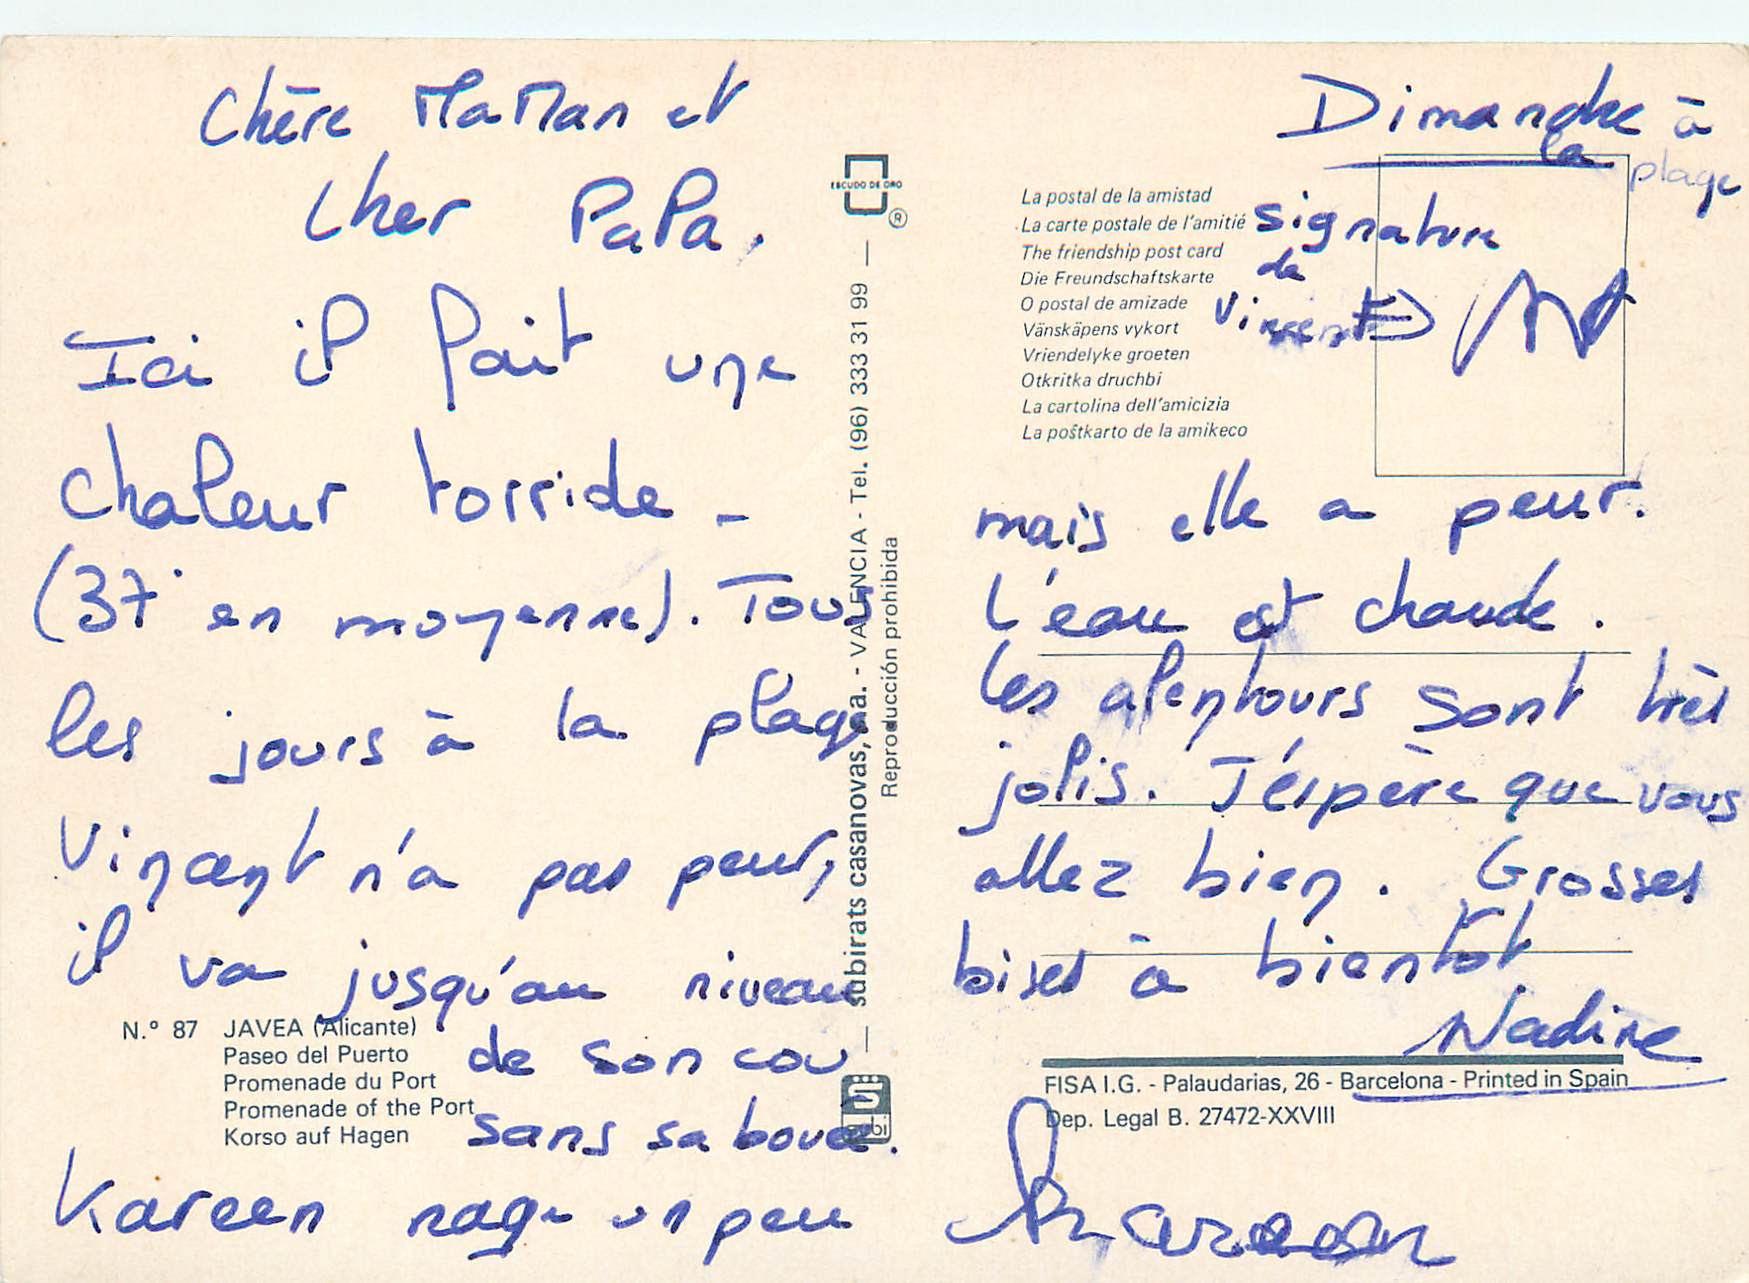 Chère MaMan et
Cher PaPa.
Ici il fait une
chaleur torride -
(37° en moyenne). Tous
les jours à la plage
Vincent n'a pas peur,
il va jusqu'au niveau
de son cou
sans sa bouée.
Kareen nage un peu
N.° 87 JAVEA (Alicante)
Paseo del Puerto
Promenade du Port
Promenade of the Port
Korso auf Hagen
ESCUDO DE ORO
®
subirats casanovas, s.a. - VALENCIA - Tel. (96) 333 31 99
Reproducción prohibida
subi
Dimanche à
la plage
La postal de la amistad
La carte postale de l'amitié
The friendship post card
Die Freundschaftskarte
O postal de amizade
Vänskäpens vykort
Vriendelyke groeten
Otkritka druchbi
La cartolina dell'amicizia
La poŝtkarto de la amikeco
signature
de
Vincent
mais elle a peur.
L'eau est chaude.
Les alentours sont très
jolis. J'éspère que vous
allez bien. Grosses
bises à bientôt
Nadine
FISA I.G. - Palaudarias, 26 - Barcelona - Printed in Spain
Dep. Legal B. 27472-XXVIII
Kareen